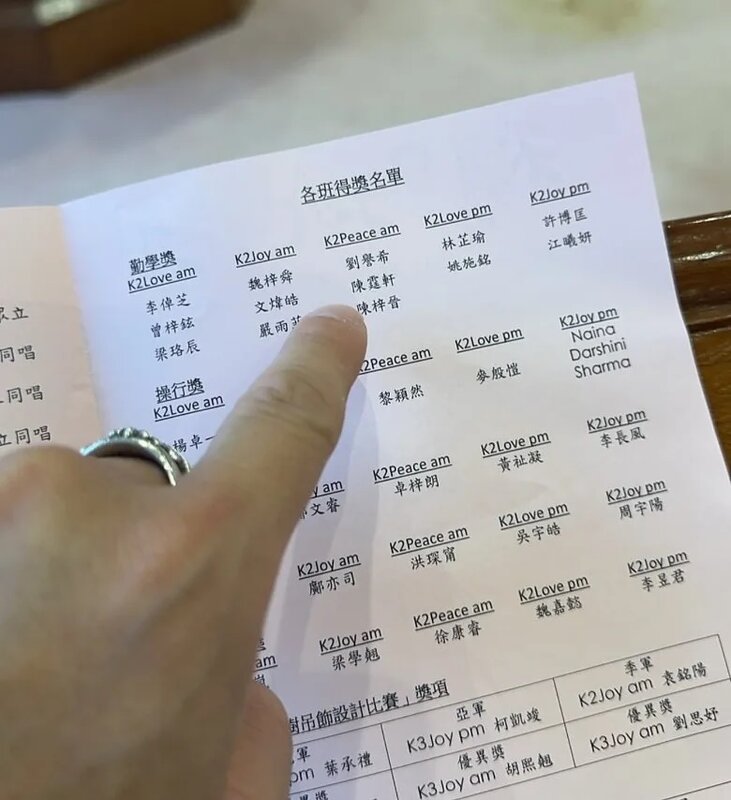 立
同唱
同唱
立同唱
各班得獎名單
勤學獎
K2Love am K2Joy am K2Peace am K2Love pm K2Joy pm
李倬芝 魏梓舜 劉譽希 林芷瑜 許博匡
曾梓鉉 文煒皓 陳霆軒 姚施銘 江曦妍
梁珞辰 嚴雨 陳梓晉
操行獎
K2Love am K2Peace am K2Love pm K2Joy pm
楊卓一 黎穎然 麥殷愷 Naina
Darshini
Sharma
Joy am K2Peace am K2Love pm K2Joy pm
文睿 卓梓朗 黃祉凝 李長風
K2Joy am K2Peace am K2Love pm K2Joy pm
鄺亦司 洪琛甯 吳宇皓 周宇陽
am K2Joy am K2Peace am K2Love pm K2Joy pm
梁學翹 徐康睿 魏嘉懿 李昱君
樹吊飾設計比賽」獎項
軍 亞軍 季軍
pm 葉承禮 K3Joy pm 柯凱竣 K2Joy am 袁銘陽
異獎 優異獎 優異獎
K3Joy am 胡熙翹 K3Joy am 劉思妤